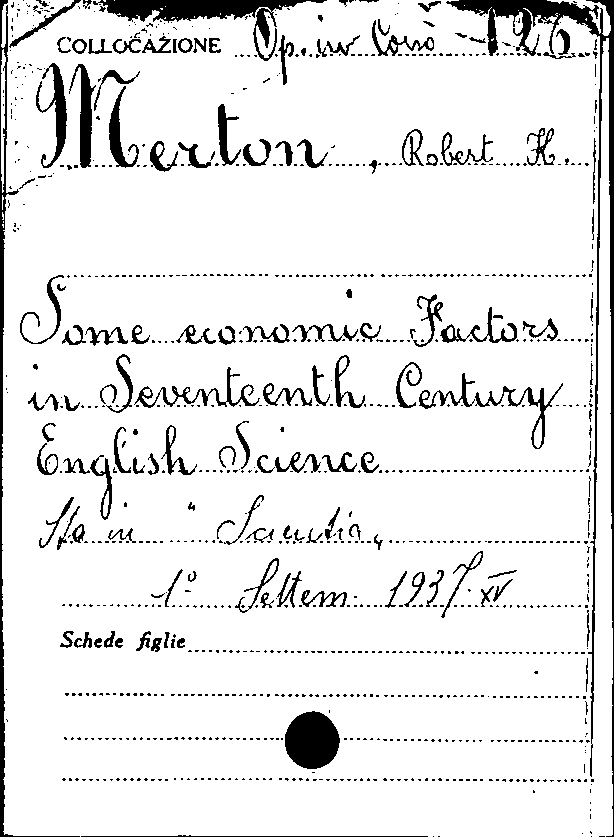 COLLOCAZIONE Op. in Corso 126
Merton, Robert K.
Some economic Factors
in Seventeenth Century
English Science
Sta in "Scientia"
1º Settem. 1937. XV
Schede figlie